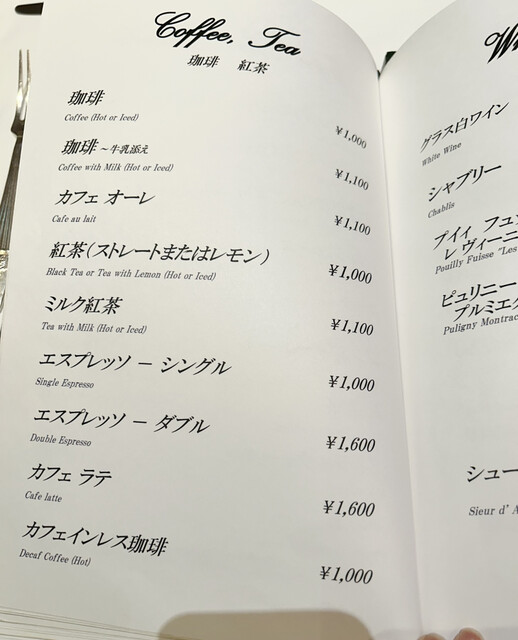 Coffee, Tea
珈琲 紅茶
珈琲
Coffee (Hot or Iced)
¥1,000
珈琲 ~牛乳添え
Coffee with Milk (Hot or Iced)
¥1,100
カフェ オーレ
Cafe au lait
¥1,100
紅茶(ストレートまたはレモン)
Black Tea or Tea with Lemon (Hot or Iced)
¥1,000
ミルク紅茶
Tea with Milk (Hot or Iced)
¥1,100
エスプレッソ － シングル
Single Espresso
¥1,000
エスプレッソ － ダブル
Double Espresso
¥1,600
カフェ ラテ
Cafe latte
¥1,600
カフェインレス珈琲
Decaf Coffee (Hot)
¥1,000
グラス白ワイン
White Wine
シャブリー
Chablis
プイィ フュ
レ ヴィーニ
Pouilly Fuisse "Les
ピュリニー
プルミエ
Puligny Montrac
シュー
Sieur d'